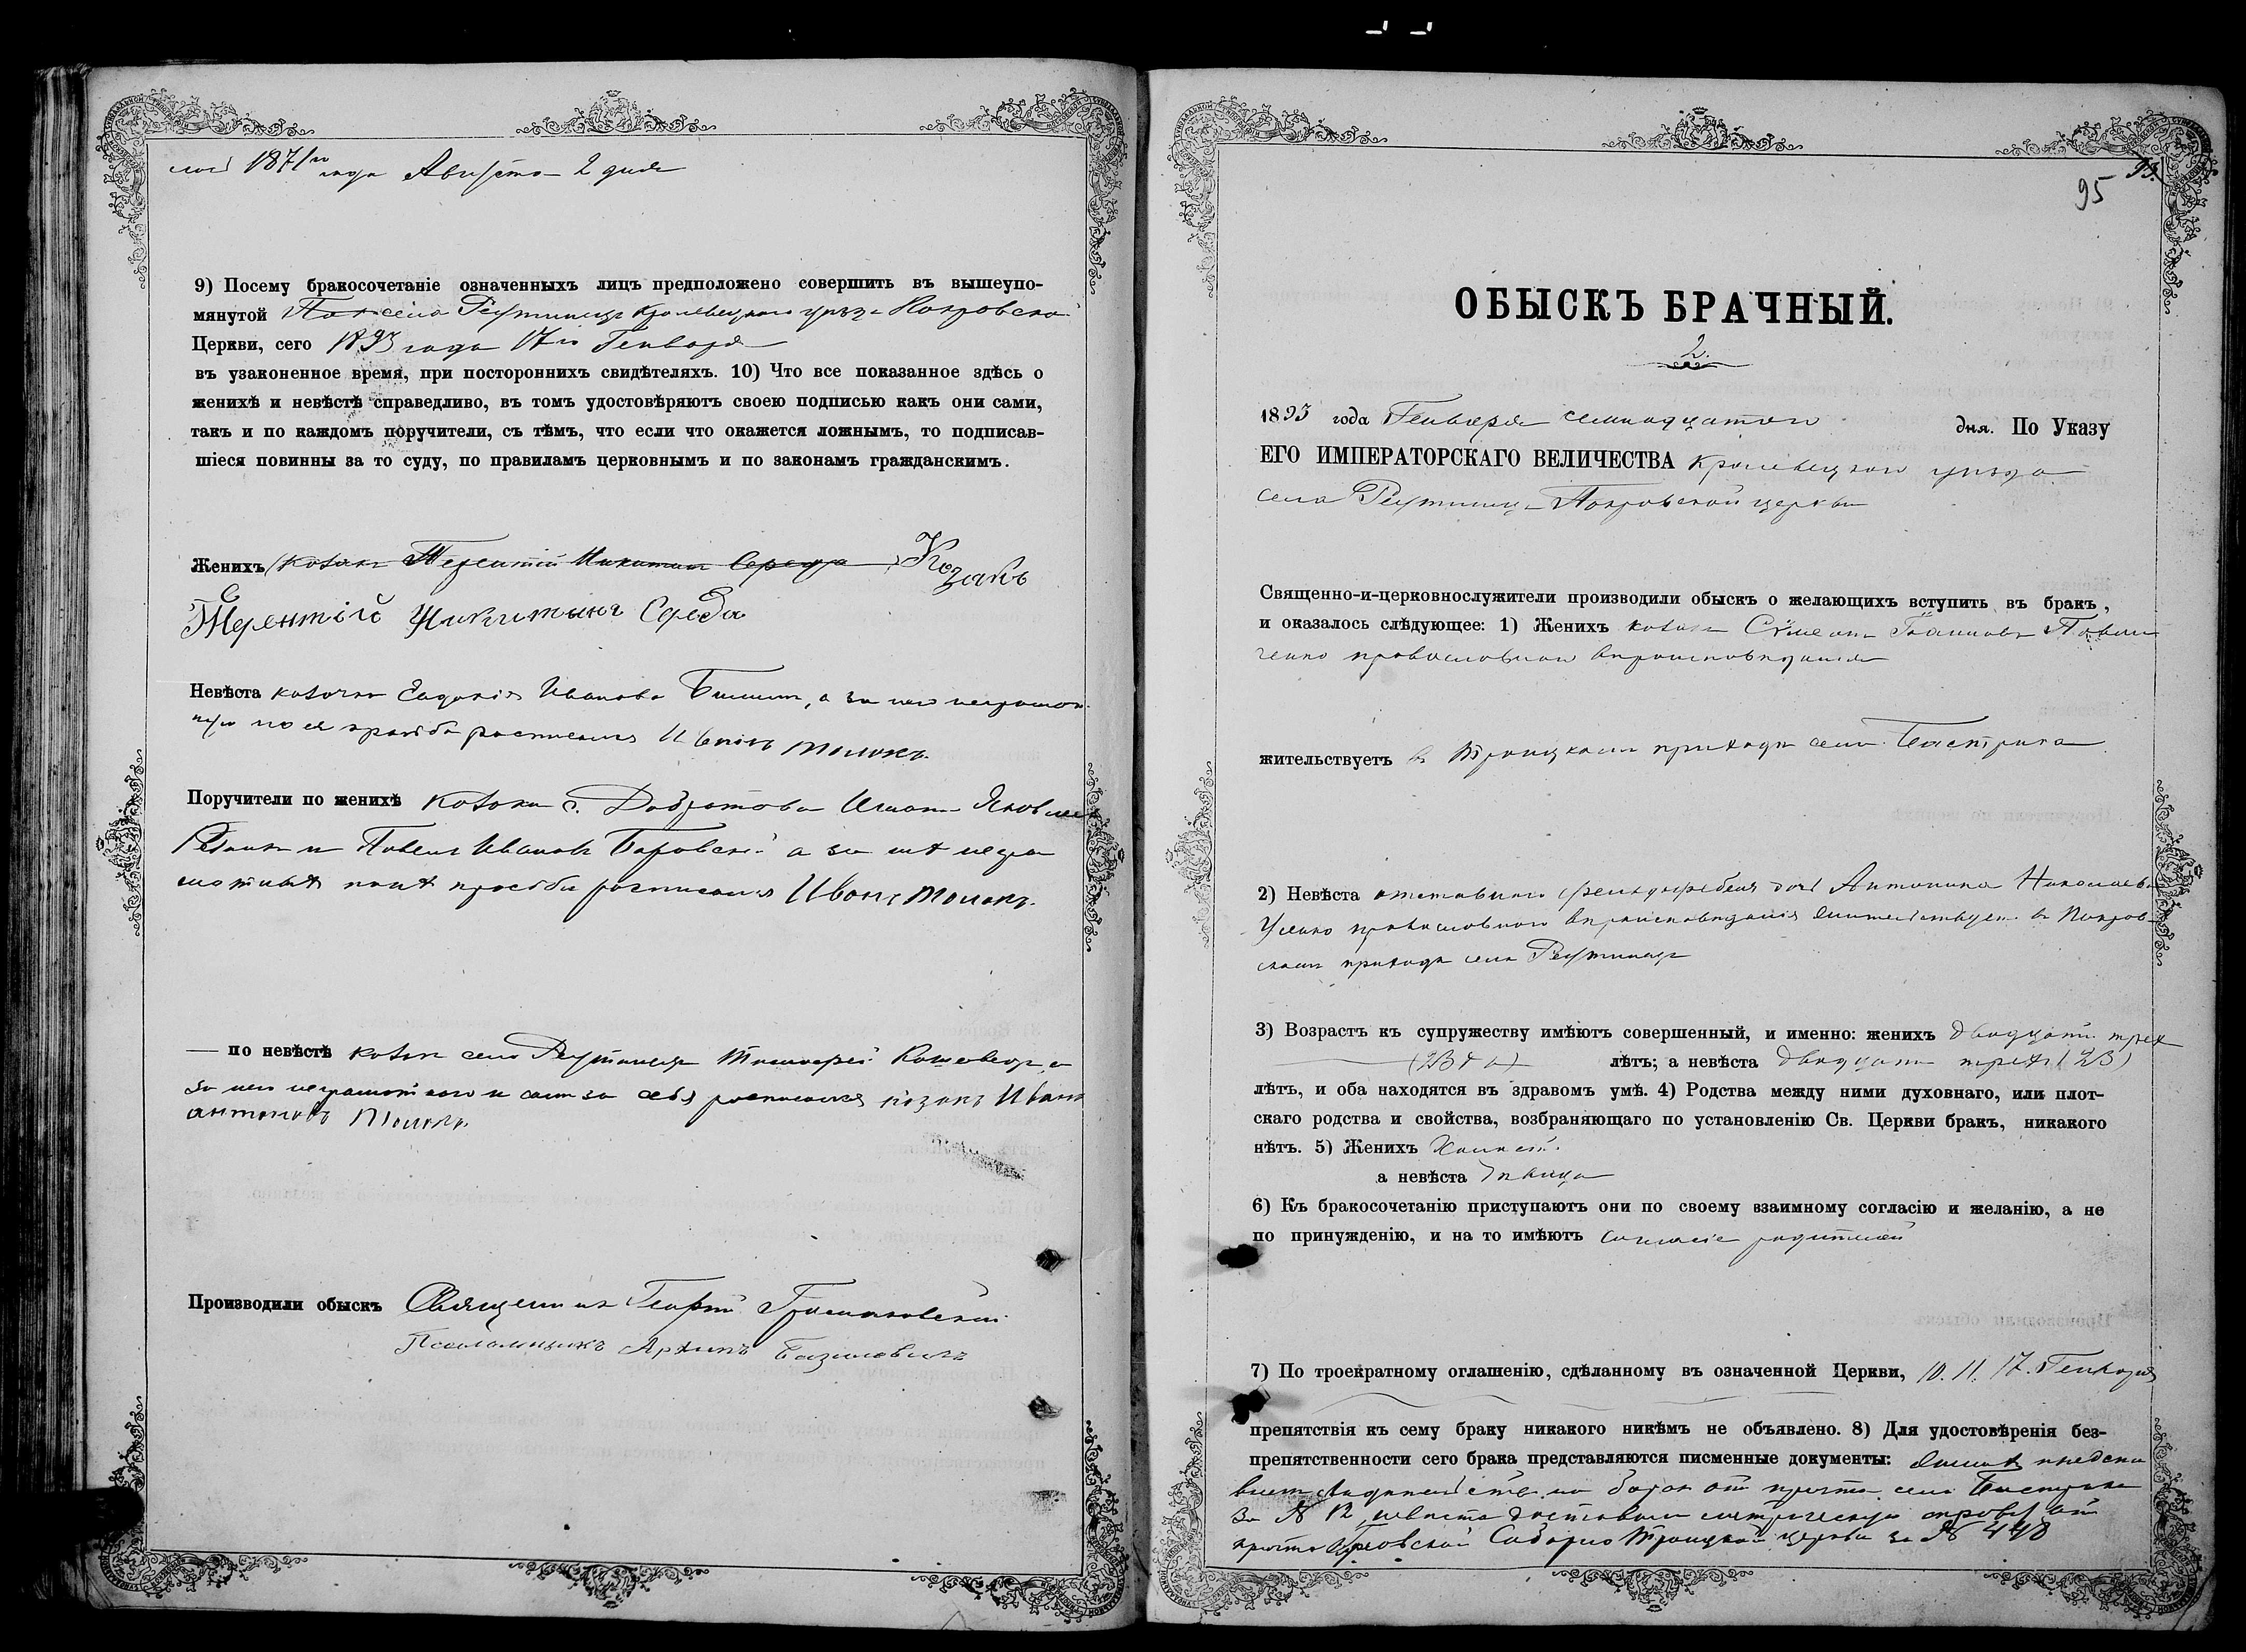 1871го года Августа 2 дня
9) Посему бракосочетаніе означенныхъ лицъ предположено совершить въ вышеупо-
мянутой села Реутинецъ Кролевецкаго уѣзда Покровской
Церкви, сего 1893 года 17го Генваря
въ узаконенное время, при постороннихъ свидѣтеляхъ. 10) Что все показанное здѣсь о
женихѣ и невѣстѣ справедливо, въ томъ удостовѣряютъ своею подписью какъ они сами,
такъ и по каждомъ поручители, съ тѣмъ, что если что окажется ложнымъ, то подписав-
шіеся повинны за то суду, по правиламъ церковнымъ и по законамъ гражданскимъ.
Женихъ козакъ Терентій Никитинъ Середа Козакъ
Терентій Никитинъ Середа
Невѣста козачка Евдокія Иванова, а за нею неграмот-
ную по ея прозьбѣ росписался Иванъ Молокъ.
Поручители по женихѣ козаки с. Добротова Яковлевъ
и Павелъ Ивановъ Боровскій а за ихъ негра
мотныхъ по ихъ прозьбѣ росписался Иванъ Молокъ.
— по невѣстѣ козакъ села Реутинецъ Тимофей Кошевор, а
за него неграмотнаго и самъ за себя росписался козакъ Иванъ
Антоновъ Молокъ.
Производили обыскъ Священникъ Георгій
Псаломщикъ Архипъ Базилевичъ
93
95
ОБЫСКЪ БРАЧНЫЙ.
2.
1893 года Генваря семнадцатого дня. По Указу
ЕГО ИМПЕРАТОРСКАГО ВЕЛИЧЕСТВА Кролевецкаго уѣзда
села Реутинецъ Покровской церкви
Священно-и-церковнослужители производили обыскъ о желающихъ вступить въ бракъ,
и оказалось слѣдующее: 1) Женихъ козакъ Сѵмеонъ Іоанновъ Павли
ченко православнаго вѣроисповѣданія
жительствуетъ въ Троицкомъ приходѣ села Быстрика
2) Невѣста отставного фельдфебеля дочь Антонина Николаева
православнаго вѣроисповѣданія жительствуетъ въ Покров-
скомъ приходѣ села Реутинецъ
3) Возрастъ къ супружеству имѣютъ совершенный, и именно: женихъ двадцати трехъ
(23хъ) лѣтъ; а невѣста двадцати трехъ (23)
лѣтъ, и оба находятся въ здравомъ умѣ. 4) Родства между ними духовнаго, или плот-
скаго родства и свойства, возбраняющаго по установленію Св. Церкви бракъ, никакого
нѣтъ. 5) Женихъ холостъ.
а невѣста дѣвица
6) Къ бракосочетанію приступаютъ они по своему взаимному согласію и желанію, а не
по принужденію, и на то имѣютъ согласіе родителей
7) По троекратному оглашенію, сдѣланному въ означенной Церкви, 10. 11. 17. Генваря
препятствія къ сему браку никакого никѣмъ не объявлено. 8) Для удостовѣренія без-
препятственности сего брака представляются писменные документы: женихъ предста
отъ причта села Быстрика
за № 12, невѣста доставила метрическую справку отъ
причта Соборно Троицкой церкви за № 448